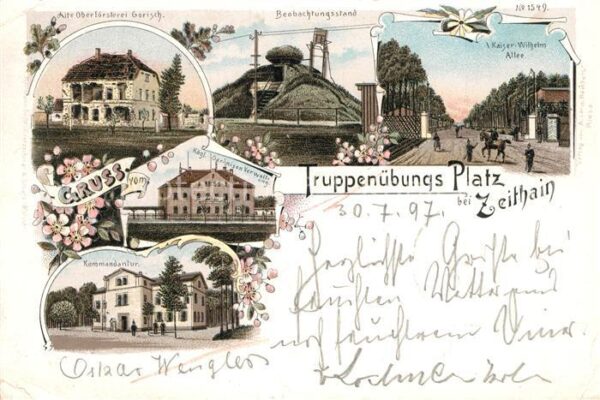 Alte Oberförsterei Gorisch.
Beobachtungsstand
No 1549.
Kaiser-Wilhelm
Allee
GRUSS vom
Kgl. Garnison Verwaltung
Truppenübungs Platz
bei Zeithain
Kommandantur.
30.7.97.
Herzlichste Grüße bei
feuchten Wetter und
noch feuchterem
Oskar Wengler